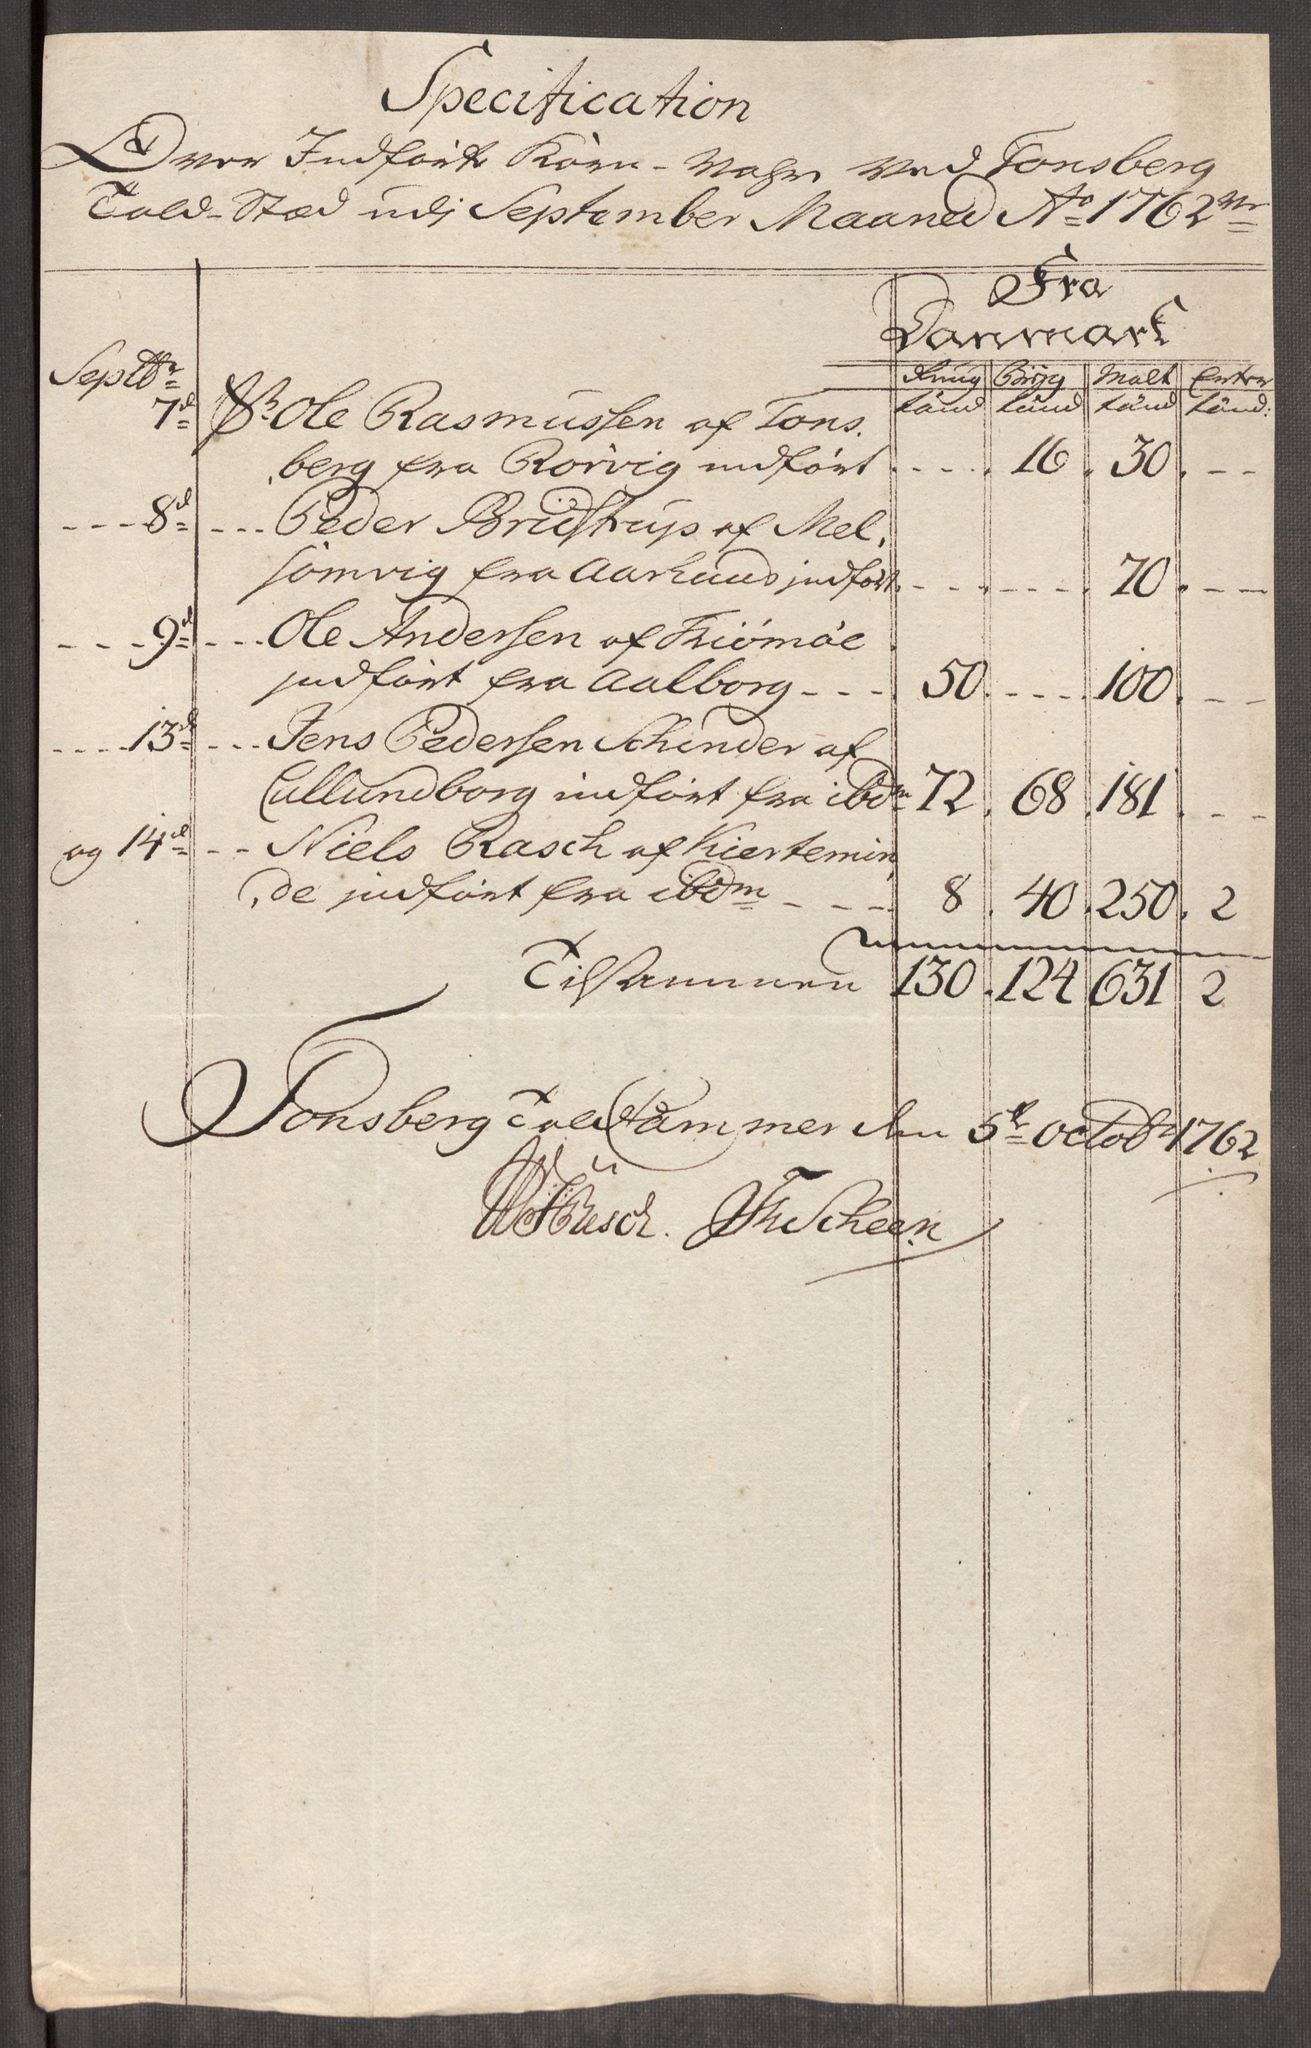 Specification
Over Indførte Korn-Vahre ved Tonsberg
Told-Stæd udj September Maaned Ao 1762
Fra
Danmark
Septbr
Rug Bÿg Malt Erter
tönd tönd tönd tönd:
7de Sr Ole Rasmussen af Tons-
berg fra Rorvig indført 16 30
8de Peder Bridstrup af Mel-
somvig fra Aarhuus indført 70
9de Ole Andersen af Thiömöe
indført fra Aalborg 50 100
13de Jens Pedersen Schinder af
Callundborg indført fra ibdm 72 68 181
og 14de Niels Rasch af Kiertemin-
de indført fra ibdm 8 40 250 2
Tilsammen 130 124 631 2
Tonsberg Told Cammer den 5te Octobr 1762
Scheen